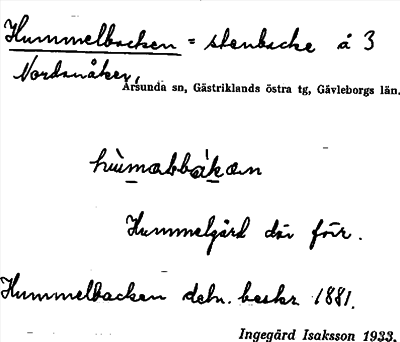 Hummelbacken = stenbacke å 3
Nordanåker,
Årsunda sn, Gästriklands östra tg, Gävleborgs län.
Hummelgård där förr.
Hummelbacken debr. beskr 1881.
Ingegärd Isaksson 1933.